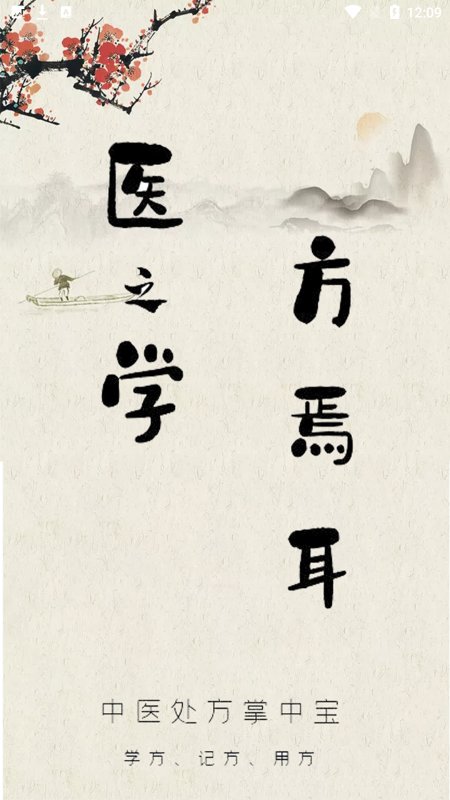 12:09
医之学
方焉耳
中医处方掌中宝
学方、记方、用方